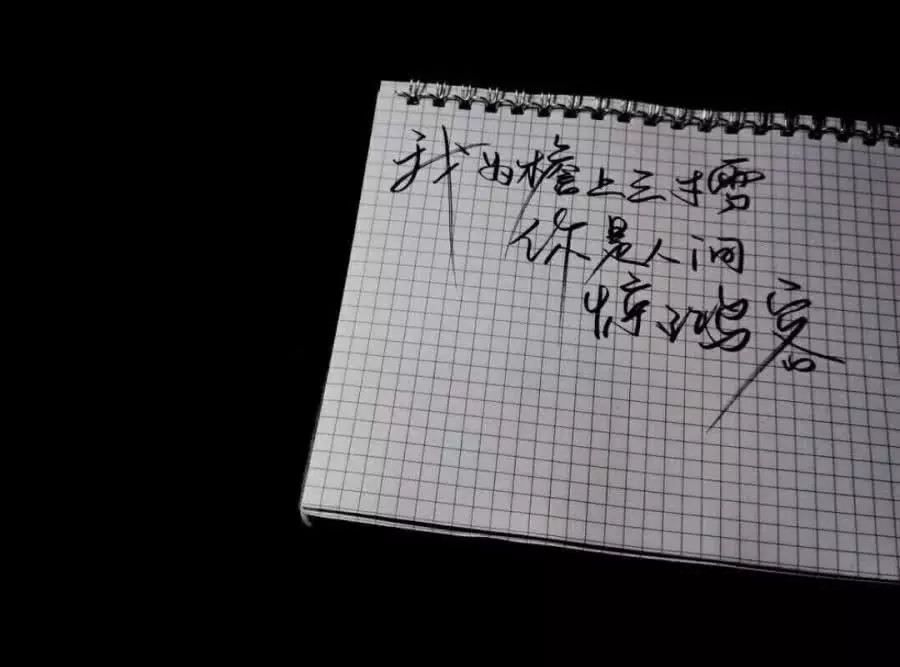 我如檐上三寸雪
你是人间
惊鸿客